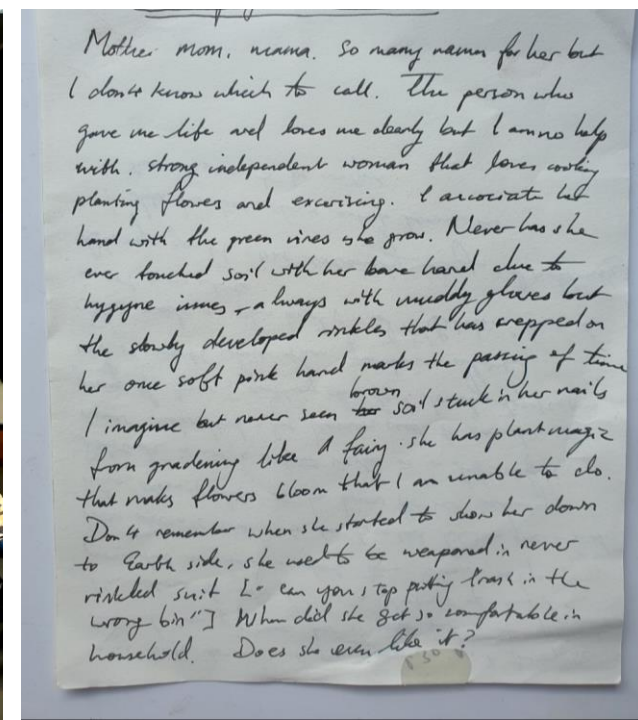 Mother mom, mama. So many names for her but
I don't know which to call. The person who
gave me life and loves me dearly but I am no help
with. strong independent woman that loves cooking
planting flowers and excerising. I associate her
hand with the green vines she grow. Never has she
ever touched soil with her bare hand due to
hygyne issues, always with muddy gloves but
the slowly developed rinkles that has crepped on
her once soft pink hand marks the passing of time
I imagine but never seen brown soil stuck in her nails
from gradening like a fairy. she has plant magic
that makes flowers bloom that I am unable to do.
Don't remember when she started to show her down
to Earth side, she used to be weaponed in never
rinkled suit [" can you stop putting trash in the
wrong bin"] When did she get so comfortable in
household. Does she even like it?